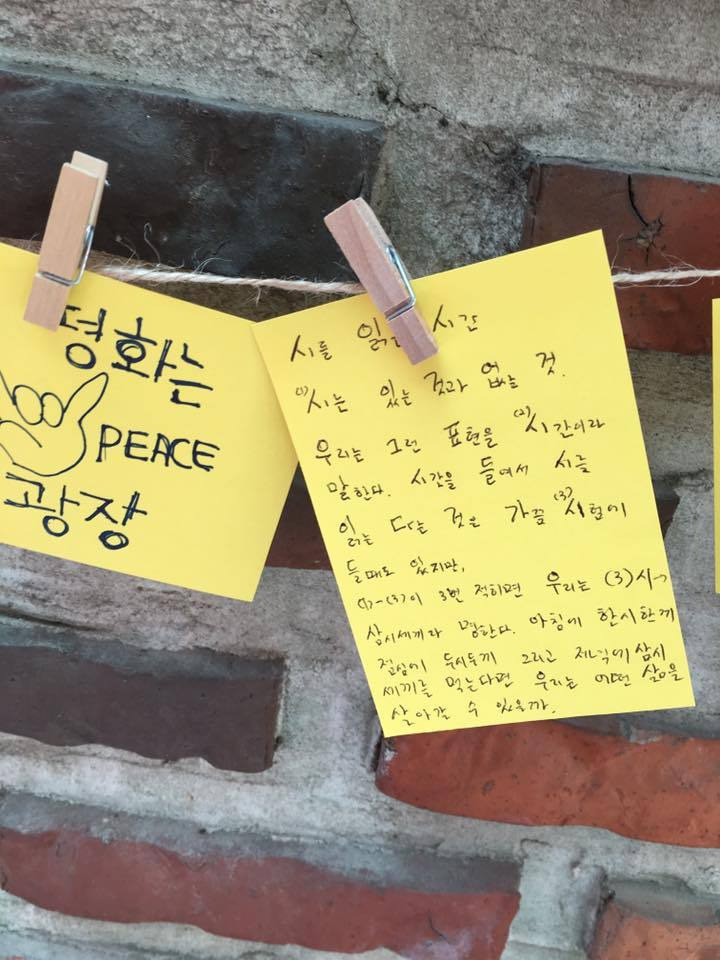 평화는
PEACE
광장
시를 읽는 시간
(1)시는 있는 것과 없는 것.
우리는 그런 표현을 (2)시간이라
말한다. 시간을 들여서 시를
읽는 다는 것은 가끔 (3)시험에
들때도 있지만,
(1)-(3)이 3번 적히면 우리는 (3)시→
삼시세끼라 명한다. 아침에 한시한끼
점심에 두시두끼 그리고 저녁에 삼시
세끼를 먹는다면 우리는 어떤 삶을
살아갈 수 있을까.